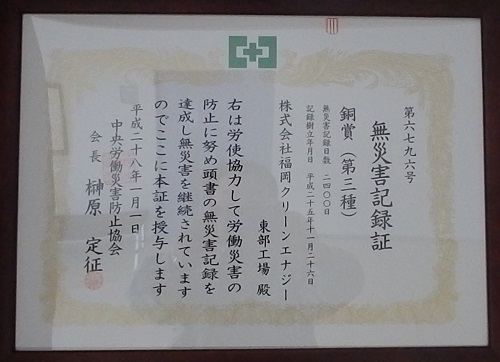 第六七九六号
無災害記録証
銅賞（第三種）
無災害記録日数　二四〇〇日
記録樹立年月日　平成二十五年十一月二十六日
株式会社福岡クリーンエナジー
東部工場　殿
右は労使協力して労働災害の
防止に努め頭書の無災害記録を
達成し無災害を継続されています
のでここに本証を授与します
平成二十八年一月一日
中央労働災害防止協会
会長　榊原　定征